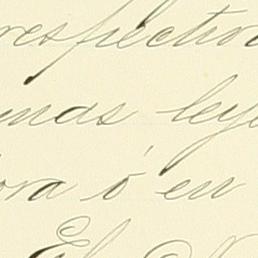 respectiva
unas leye
ora ó en
El